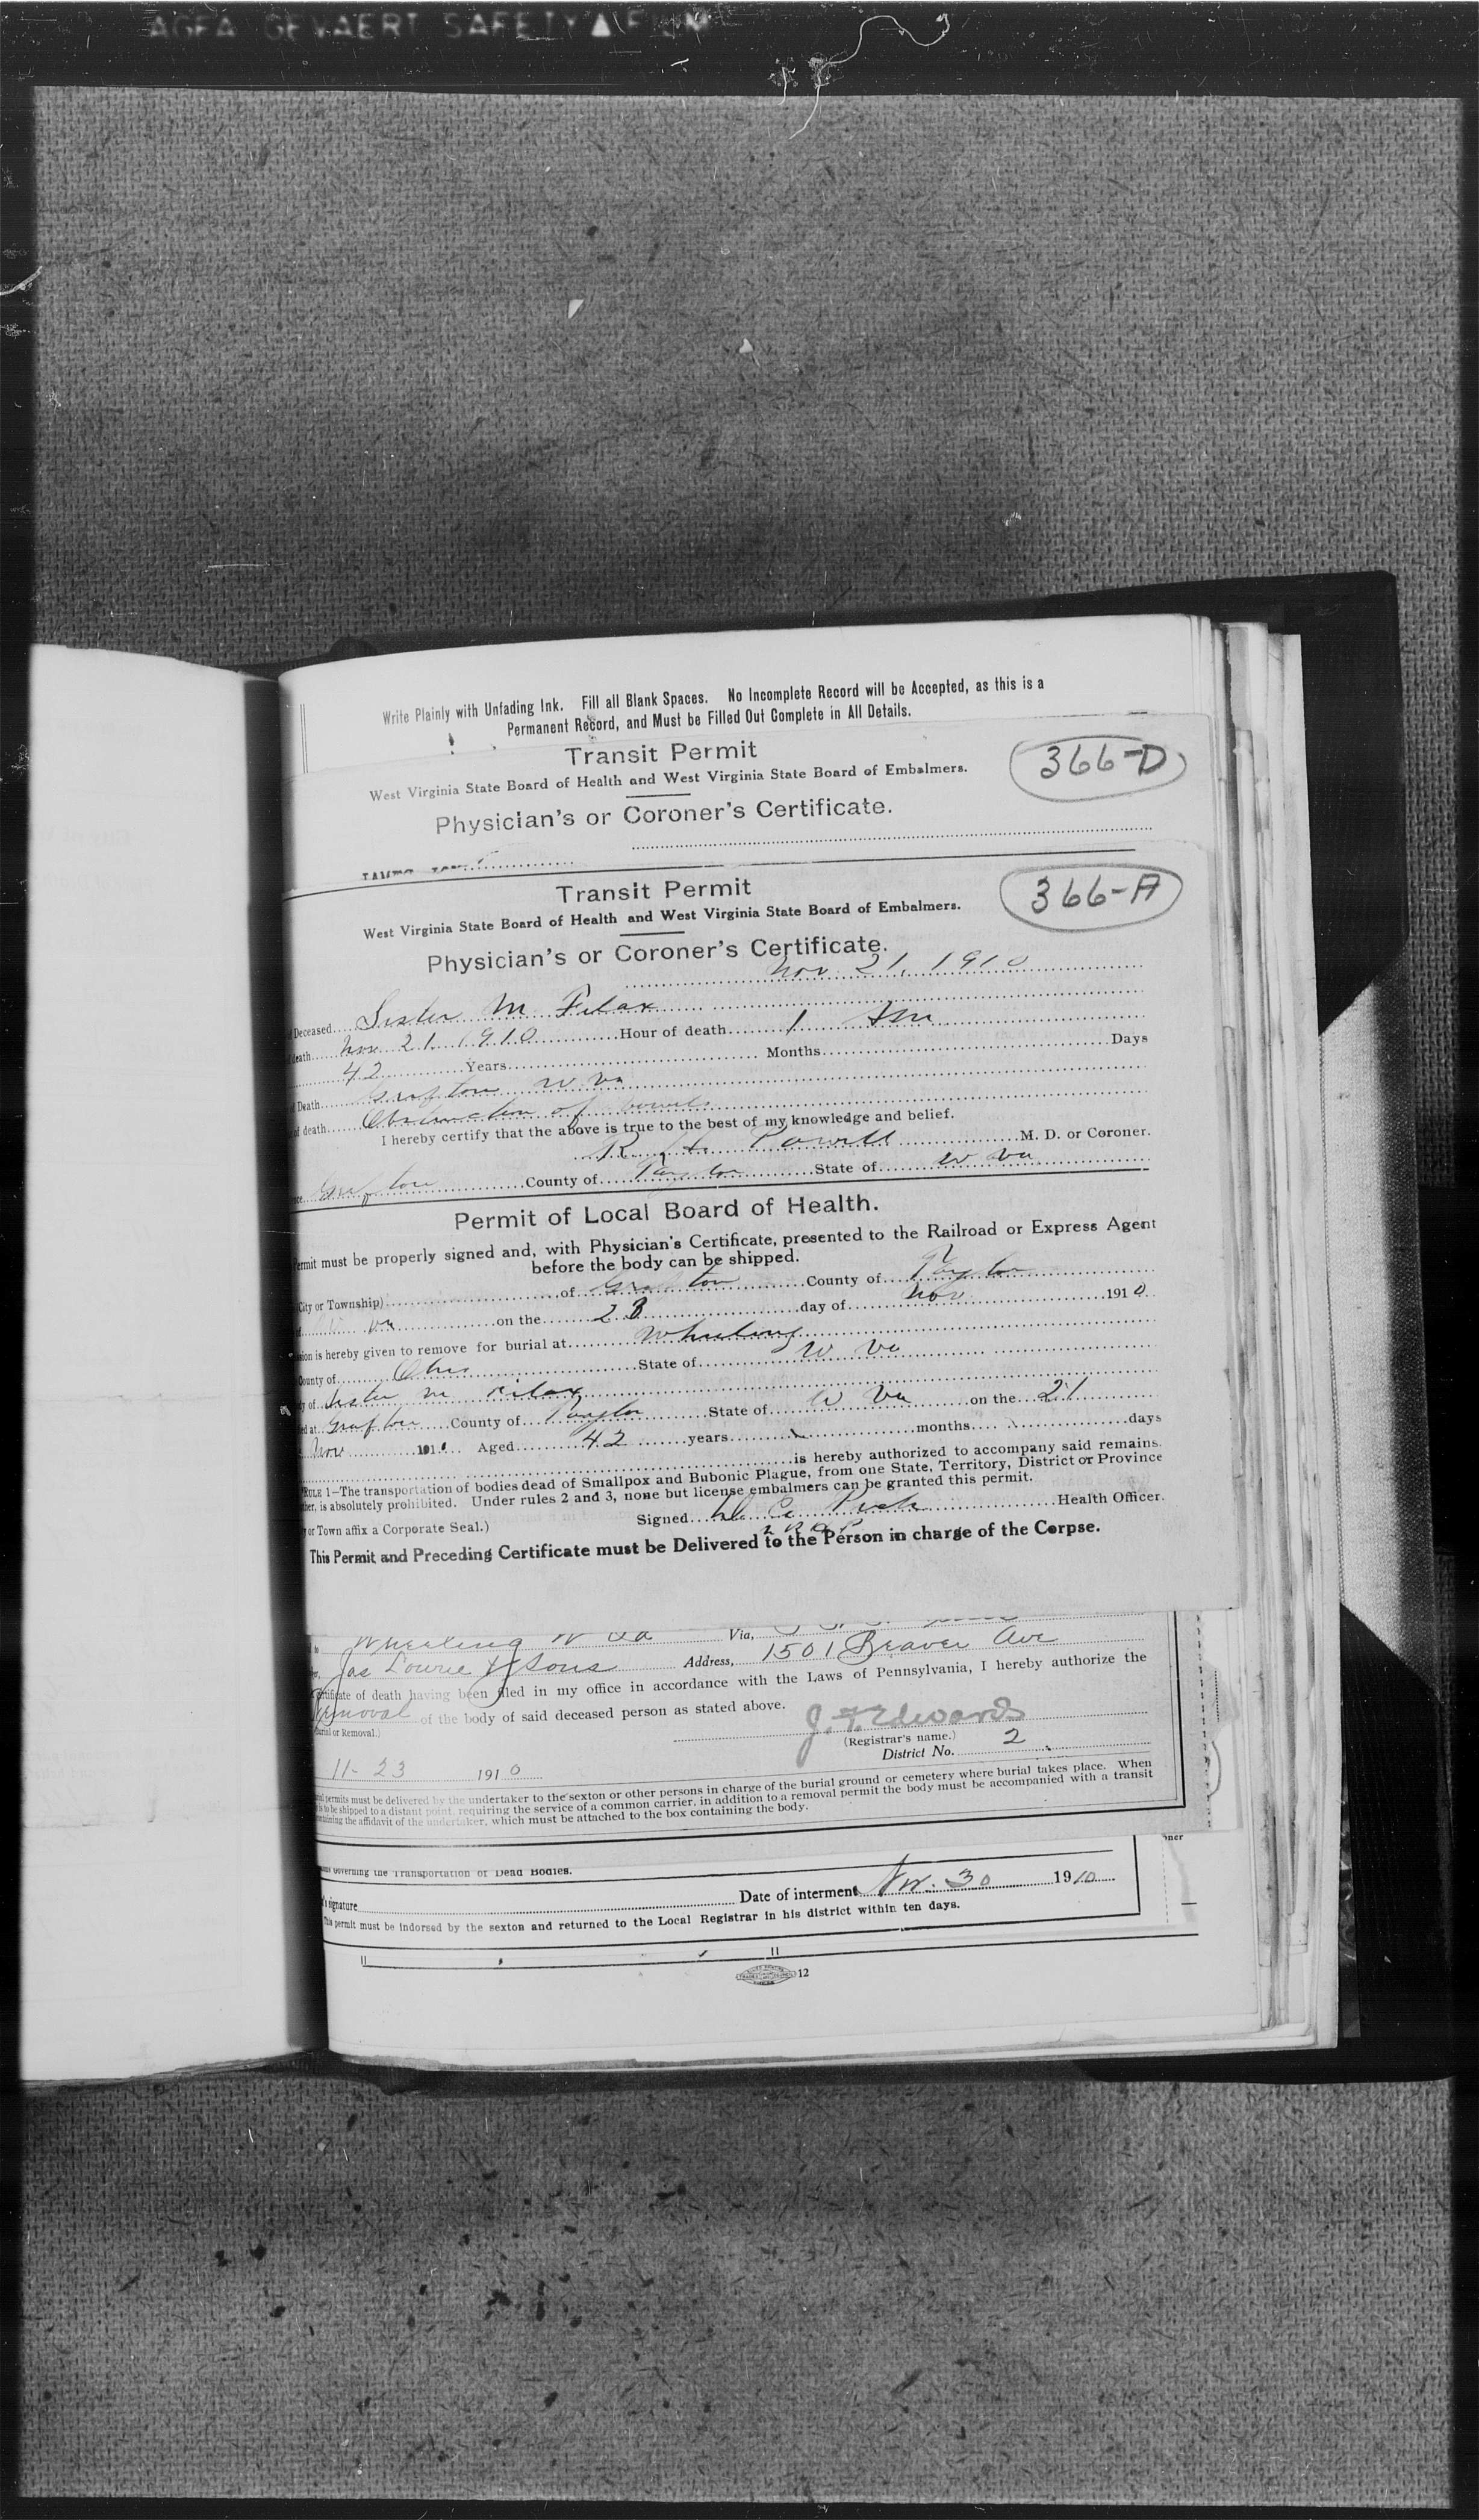 AGFA GEVAERT SAFETY ▲ FILM
Write Plainly with Unfading Ink. Fill all Blank Spaces. No Incomplete Record will be Accepted, as this is a
Permanent Record, and Must be Filled Out Complete in All Details.
Transit Permit
366-D
West Virginia State Board of Health and West Virginia State Board of Embalmers.
Physician's or Coroner's Certificate.
Transit Permit
366-A
West Virginia State Board of Health and West Virginia State Board of Embalmers.
Physician's or Coroner's Certificate.
Nov 21, 1910
Deceased Sister M Filax
death Nov 21 1910 Hour of death 1 Am
42 Years Months Days
Death Grafton W Va
of death Obstruction of bowels
I hereby certify that the above is true to the best of my knowledge and belief.
R Powell M. D. or Coroner.
Grafton County of Taylor State of W Va
Permit of Local Board of Health.
ermit must be properly signed and, with Physician's Certificate, presented to the Railroad or Express Agent
before the body can be shipped.
City or Township) of Grafton County of Taylor
W Va on the 23 day of Nov 1910
sion is hereby given to remove for burial at Wheeling
County of Ohio State of W Va
y of Sister M Filax
ed at Grafton County of Taylor State of W Va on the 21
Nov 1910 Aged 42 years months days
is hereby authorized to accompany said remains.
RULE 1—The transportation of bodies dead of Smallpox and Bubonic Plague, from one State, Territory, District or Province
ther, is absolutely prohibited. Under rules 2 and 3, none but license embalmers can be granted this permit.
Signed Peck Health Officer.
y or Town affix a Corporate Seal.)
This Permit and Preceding Certificate must be Delivered to the Person in charge of the Corpse.
to Wheeling W Va Via,
Jas Lowrie & Sons Address, 1501 Beaver Ave
rtificate of death having been filed in my office in accordance with the Laws of Pennsylvania, I hereby authorize the
Removal of the body of said deceased person as stated above.
(Burial or Removal.)
J. F. Edwards
(Registrar's name.)
District No. 2
11-23 1910
permits must be delivered by the undertaker to the sexton or other persons in charge of the burial ground or cemetery where burial takes place. When
is to be shipped to a distant point, requiring the service of a common carrier, in addition to a removal permit the body must be accompanied with a transit
ntaining the affidavit of the undertaker, which must be attached to the box containing the body.
oner
Governing the Transportation of Dead Bodies.
's signature Date of interment Nov. 30 1910
This permit must be indorsed by the sexton and returned to the Local Registrar in his district within ten days.
11
11
12